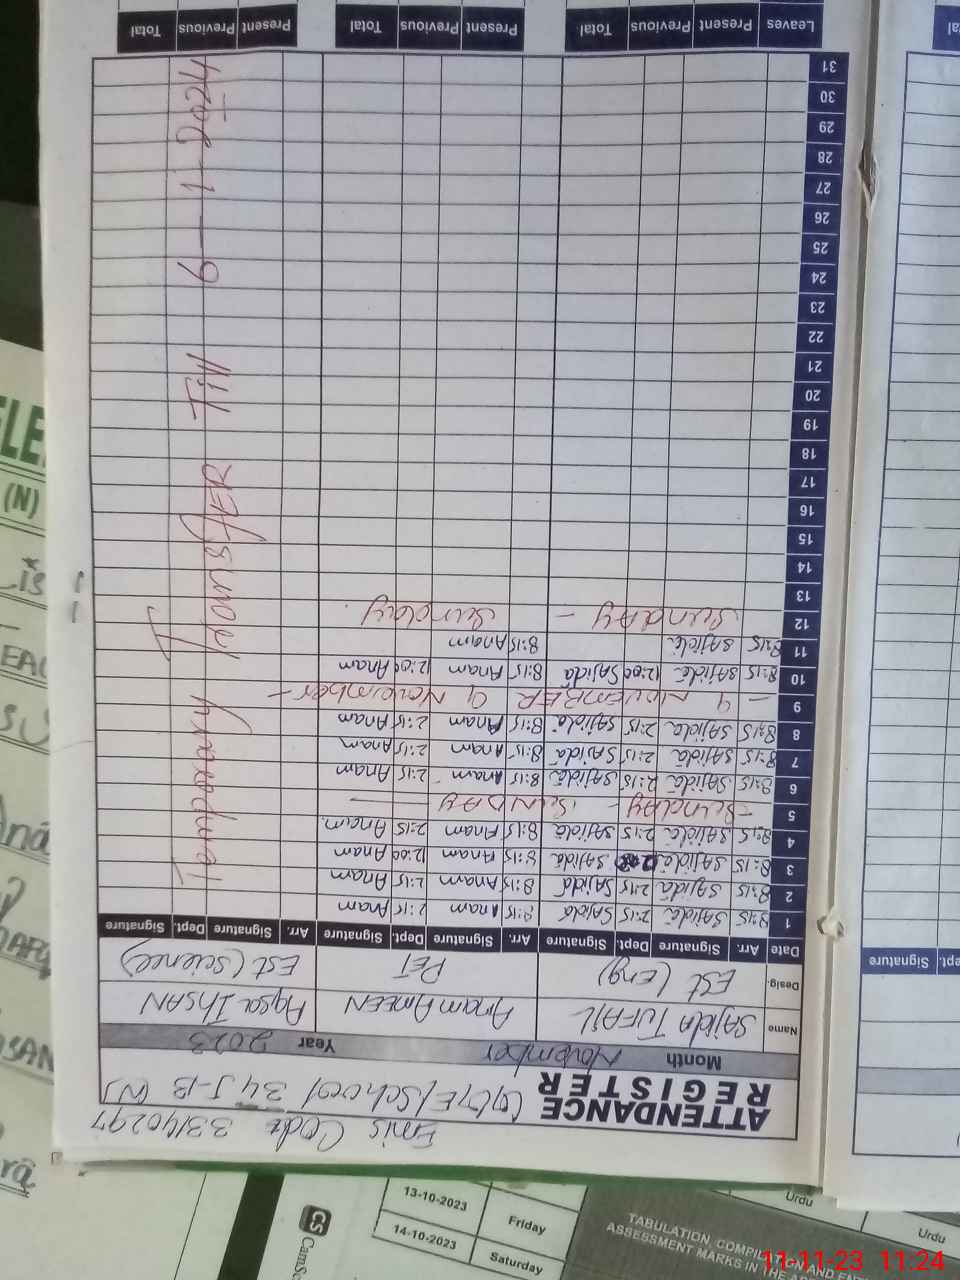 Emis Code 33140297
ATTENDANCE REGISTER School 345-B (N)
Month November Year 2023
Name SAJIDA TUFAIL Anam AMEEN Aqsa IHSAN
Desig. Est (eng) PET Est (science)
Date Arr. Signature Dept. Signature Arr. Signature Dept. Signature Arr. Signature Dept. Signature
1 8:15 SAjida 2:15 SAjida 8:15 Anam 2:15 Anam
2 8:15 SAjida 2:15 SAjida 8:15 Anam 2:15 Anam
3 8:15 SAjida SAjida 8:15 Anam 12:00 Anam
4 8:15 SAjida 2:15 SAjida 8:15 Anam 2:15 Anam
5 - Sunday - SUNDAY -
6 8:15 SAjida 2:15 SAjida 8:15 Anam 2:15 Anam
7 8:15 SAjida 2:15 SAjida 8:15 Anam 2:15 Anam
8 8:15 SAjida 2:15 SAjida 8:15 Anam 2:15 Anam
9 - 9 NOVEMBER 9 November -
10 8:15 SAjida 12:00 SAjida 8:15 Anam 12:00 Anam
11 8:15 SAjida 8:15 Anam
12 Sunday - Sunday
13
14
15
16
17
18
19
20
21
22
23
24
25
26
27
28
29
30
31
Temporary TransfER Till 6-1-2024
Leaves Present Previous Total Present Previous Total Present Previous Total
Dept. Signature
(N)
13-10-2023 Friday
14-10-2023 Saturday
Urdu
Urdu
CS CamSc
TABULATION, COMPILATION AND
ASSESSMENT MARKS IN THE
11-11-23 11:24